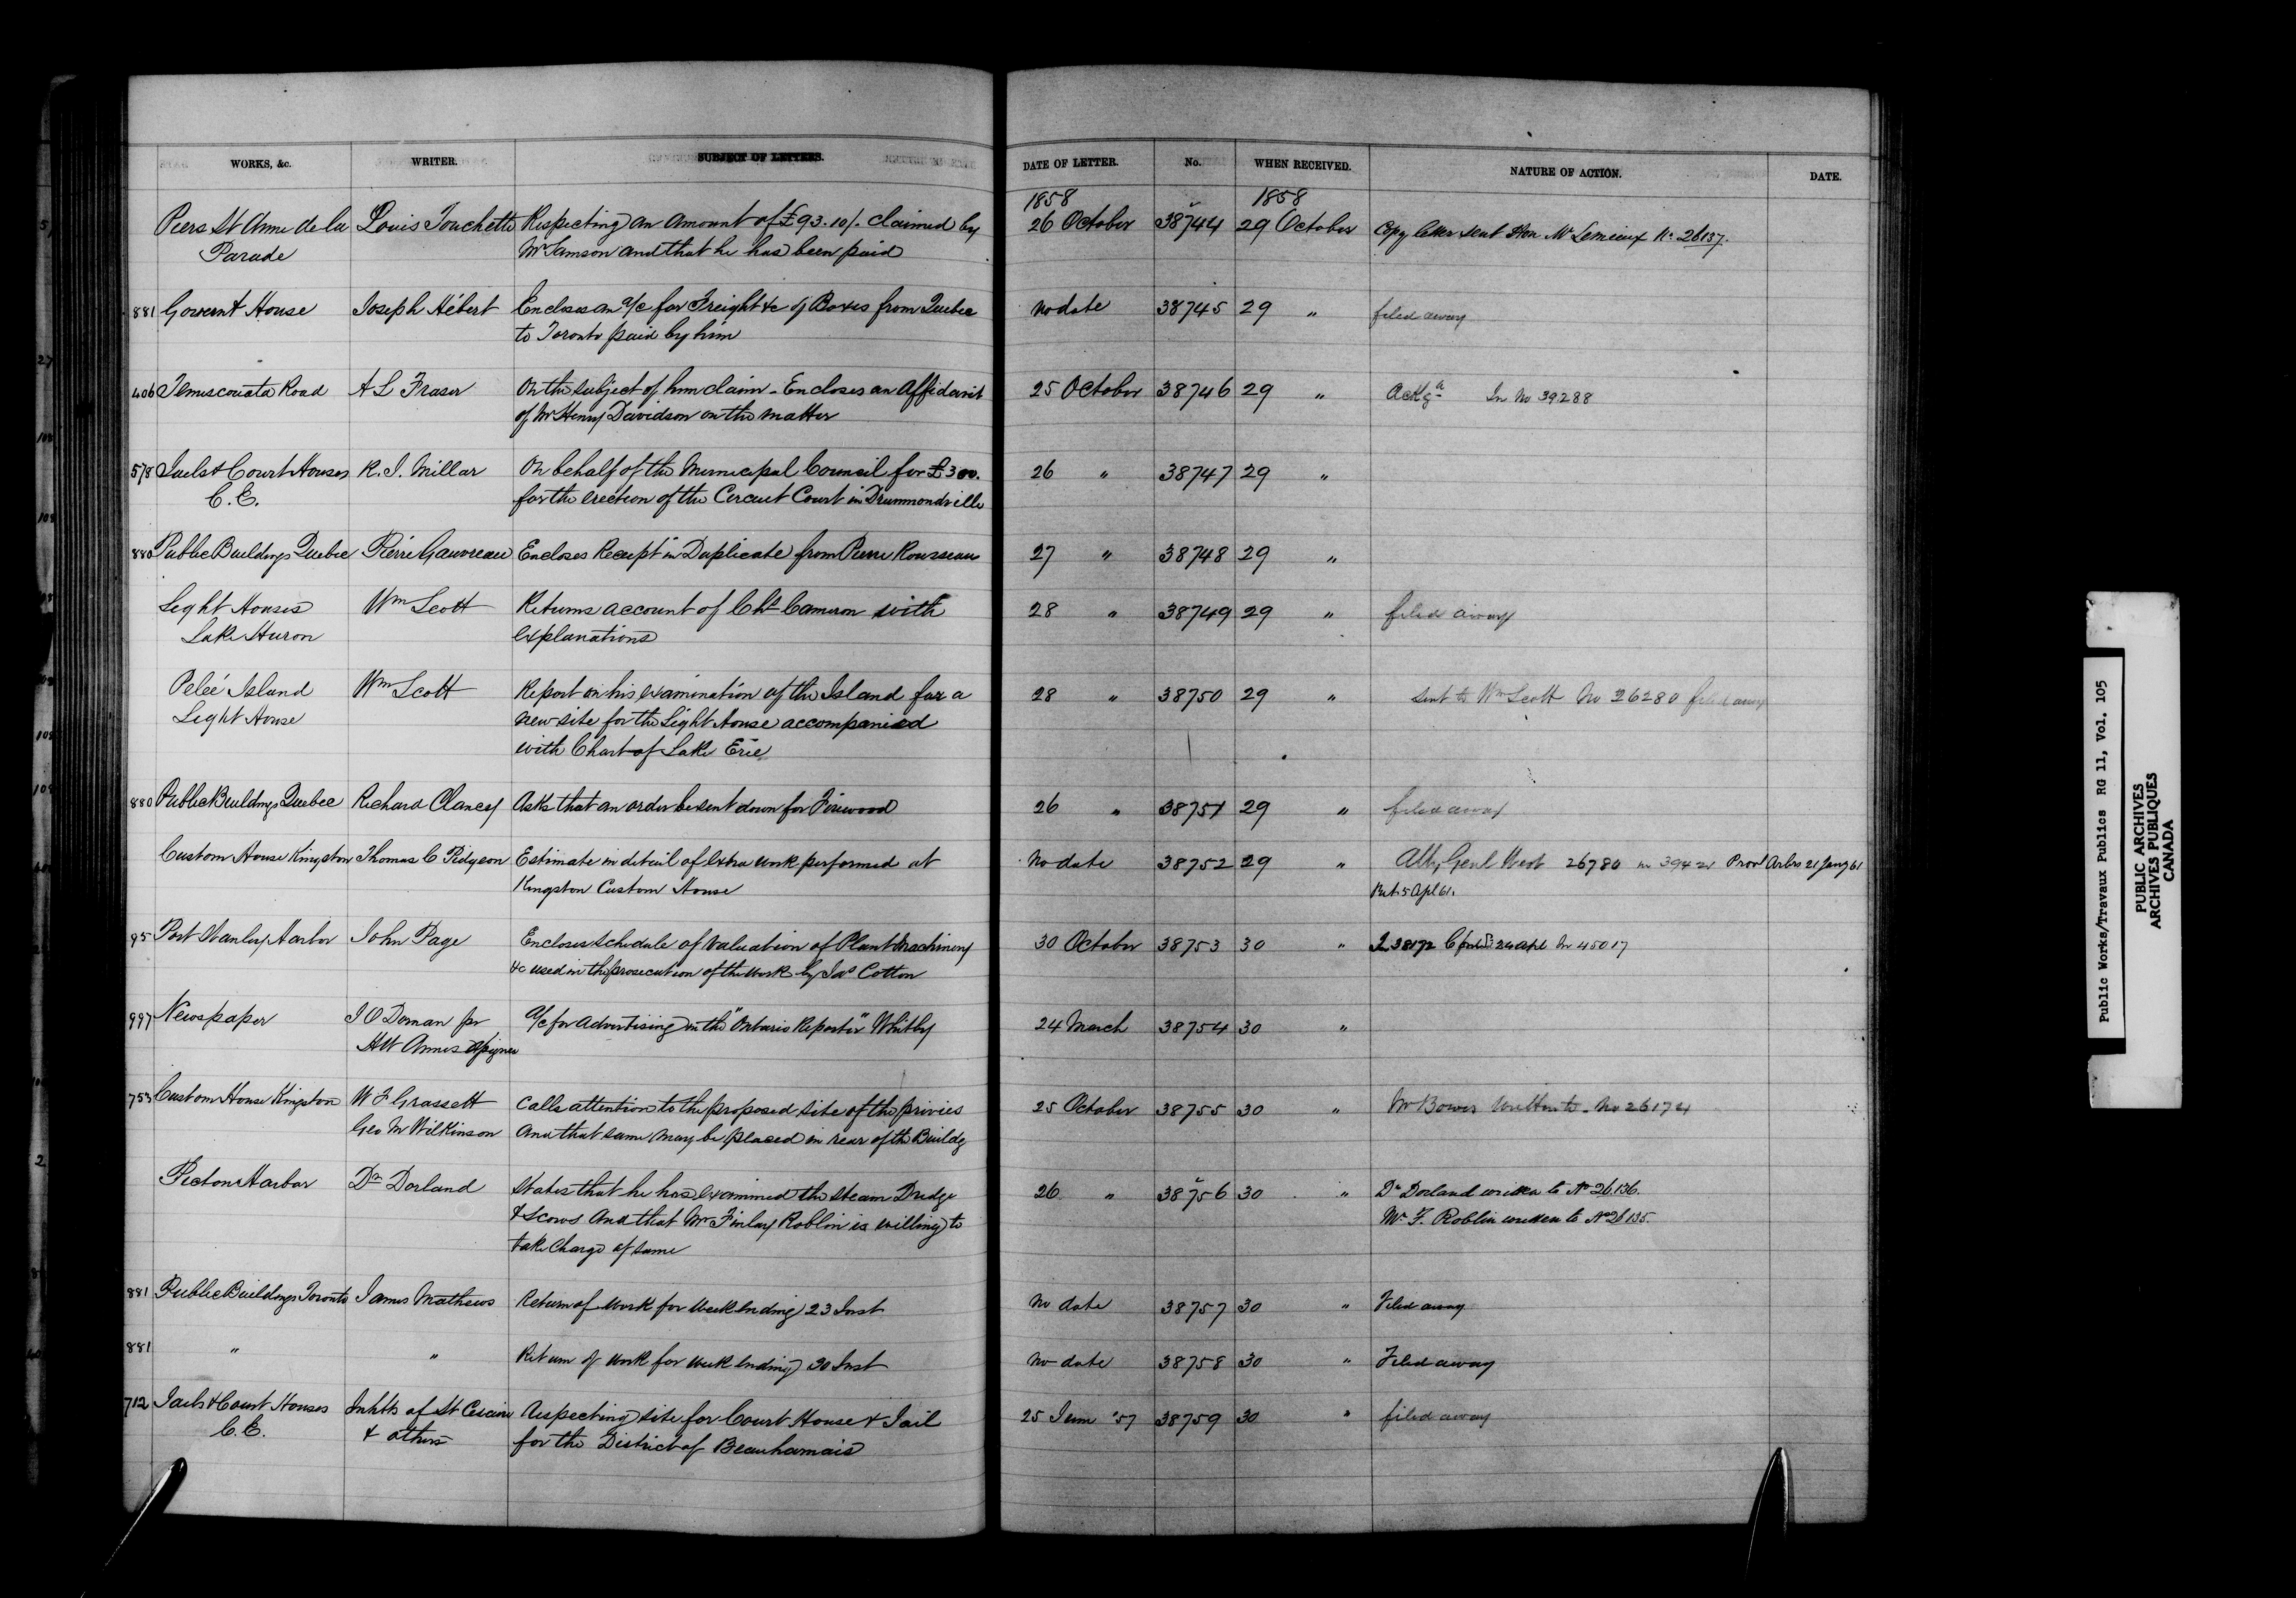 WORKS, &c. WRITER. SUBJECT OF LETTERS. DATE OF LETTER. No. WHEN RECEIVED. NATURE OF ACTION. DATE.
1858 1858
Piers St Anne de la Louis Touchette Respecting an amount of £93.10/. claimed by 26 October 38744 29 October Copy letter sent Hon Mr Lemieux No 26137.
Parade Mr Samson and that he has been paid
881 Governt House Joseph Hébert Encloses an a/c for Freight &c of Boxes from Quebec no date 38745 29 " filed away
to Toronto paid by him
406 Temiscouata Road A L Fraser On the subject of hm claim - Encloses an Affidavit 25 October 38746 29 " Ackgd In No 39288
of Mr Henry Davidson on the matter
578 Jails & Court Houses R. J. Millar On behalf of the Municipal Council for £300. 26 " 38747 29 "
C.E. for the erection of the Circuit Court in Drummondville
880 Public Buildings Quebec Pierre Gauvreau Encloses Receipt in Duplicate from Pierre Rousseau 27 " 38748 29 "
Light Houses Wm Scott Returns account of Cht Cameron with 28 " 38749 29 " filed away
Lake Huron explanations
Peleé Island Wm Scott Report on his examination of the Island for a 28 " 38750 29 " sent to Wm Scott No 26280 filed away
Light House new site for the Light House accompanied
with Chart of Lake Erie
880 Public Buildings Quebec Richard Clancy Asks that an order be sent down for Firewood 26 " 38751 29 " filed away
Custom House Kingston Thomas C Pidgeon Estimate in detail of extra work performed at no date 38752 29 " Atty Genl West 26780 in 39421 Provl Arbrs 21 Jany 61
Kingston Custom House Ret. 5 Apl 61.
95 Port Stanley Harbor John Page Encloses schedule of valuation of Plant Machinery 30 October 38753 30 " 38172 24 Apl In 45017
&c used in the prosecution of the work by Jas Cotton
997 Newspaper J O Dornan pr a/c for Advertising in the "Ontario Reporter" Whitby 24 March 38754 30 "
H W Annes Assignee
753 Custom House Kingston W F Grassett Calls attention to the proposed site of the privies 25 October 38755 30 " Mr Bowes written to - No 26174
Geo M Wilkinson and that same may be placed in rear of the Buildg
Picton Harbor Dr Dorland States that he has examined the Steam Dredge 26 " 38756 30 " Dr Dorland written to No 26136.
& Scows and that Mr Finlay Roblin is willing to Mr F. Roblin written to No 26135.
take charge of same
881 Public Buildings Toronto James Mathews Return of work for week ending 23 Inst no date 38757 30 " Filed away
881 " " Return of work for week ending 30 Inst no date 38758 30 " Filed away
712 Jails & Court Houses Inhbts of St Cesaire Respecting site for Court House & Jail 25 June '57 38759 30 " filed away
C.E. & others for the District of Beauharnais
Public Works/Travaux Publics RG 11, Vol. 105
PUBLIC ARCHIVES
ARCHIVES PUBLIQUES
CANADA